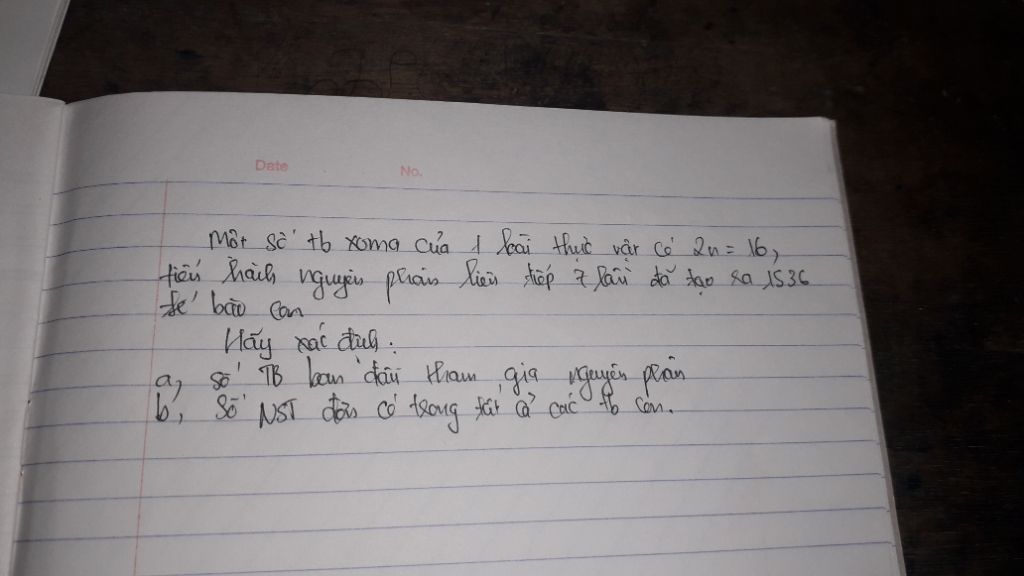 Date No.
Một số tb xoma của 1 loài thực vật có 2n = 16,
tiến hành nguyên phân liên tiếp 7 lần đã tạo ra 1536
tế bào con
Hãy xác định:
a, số TB ban đầu tham gia nguyên phân
b, Số NST đơn có trong tất cả các tb con.